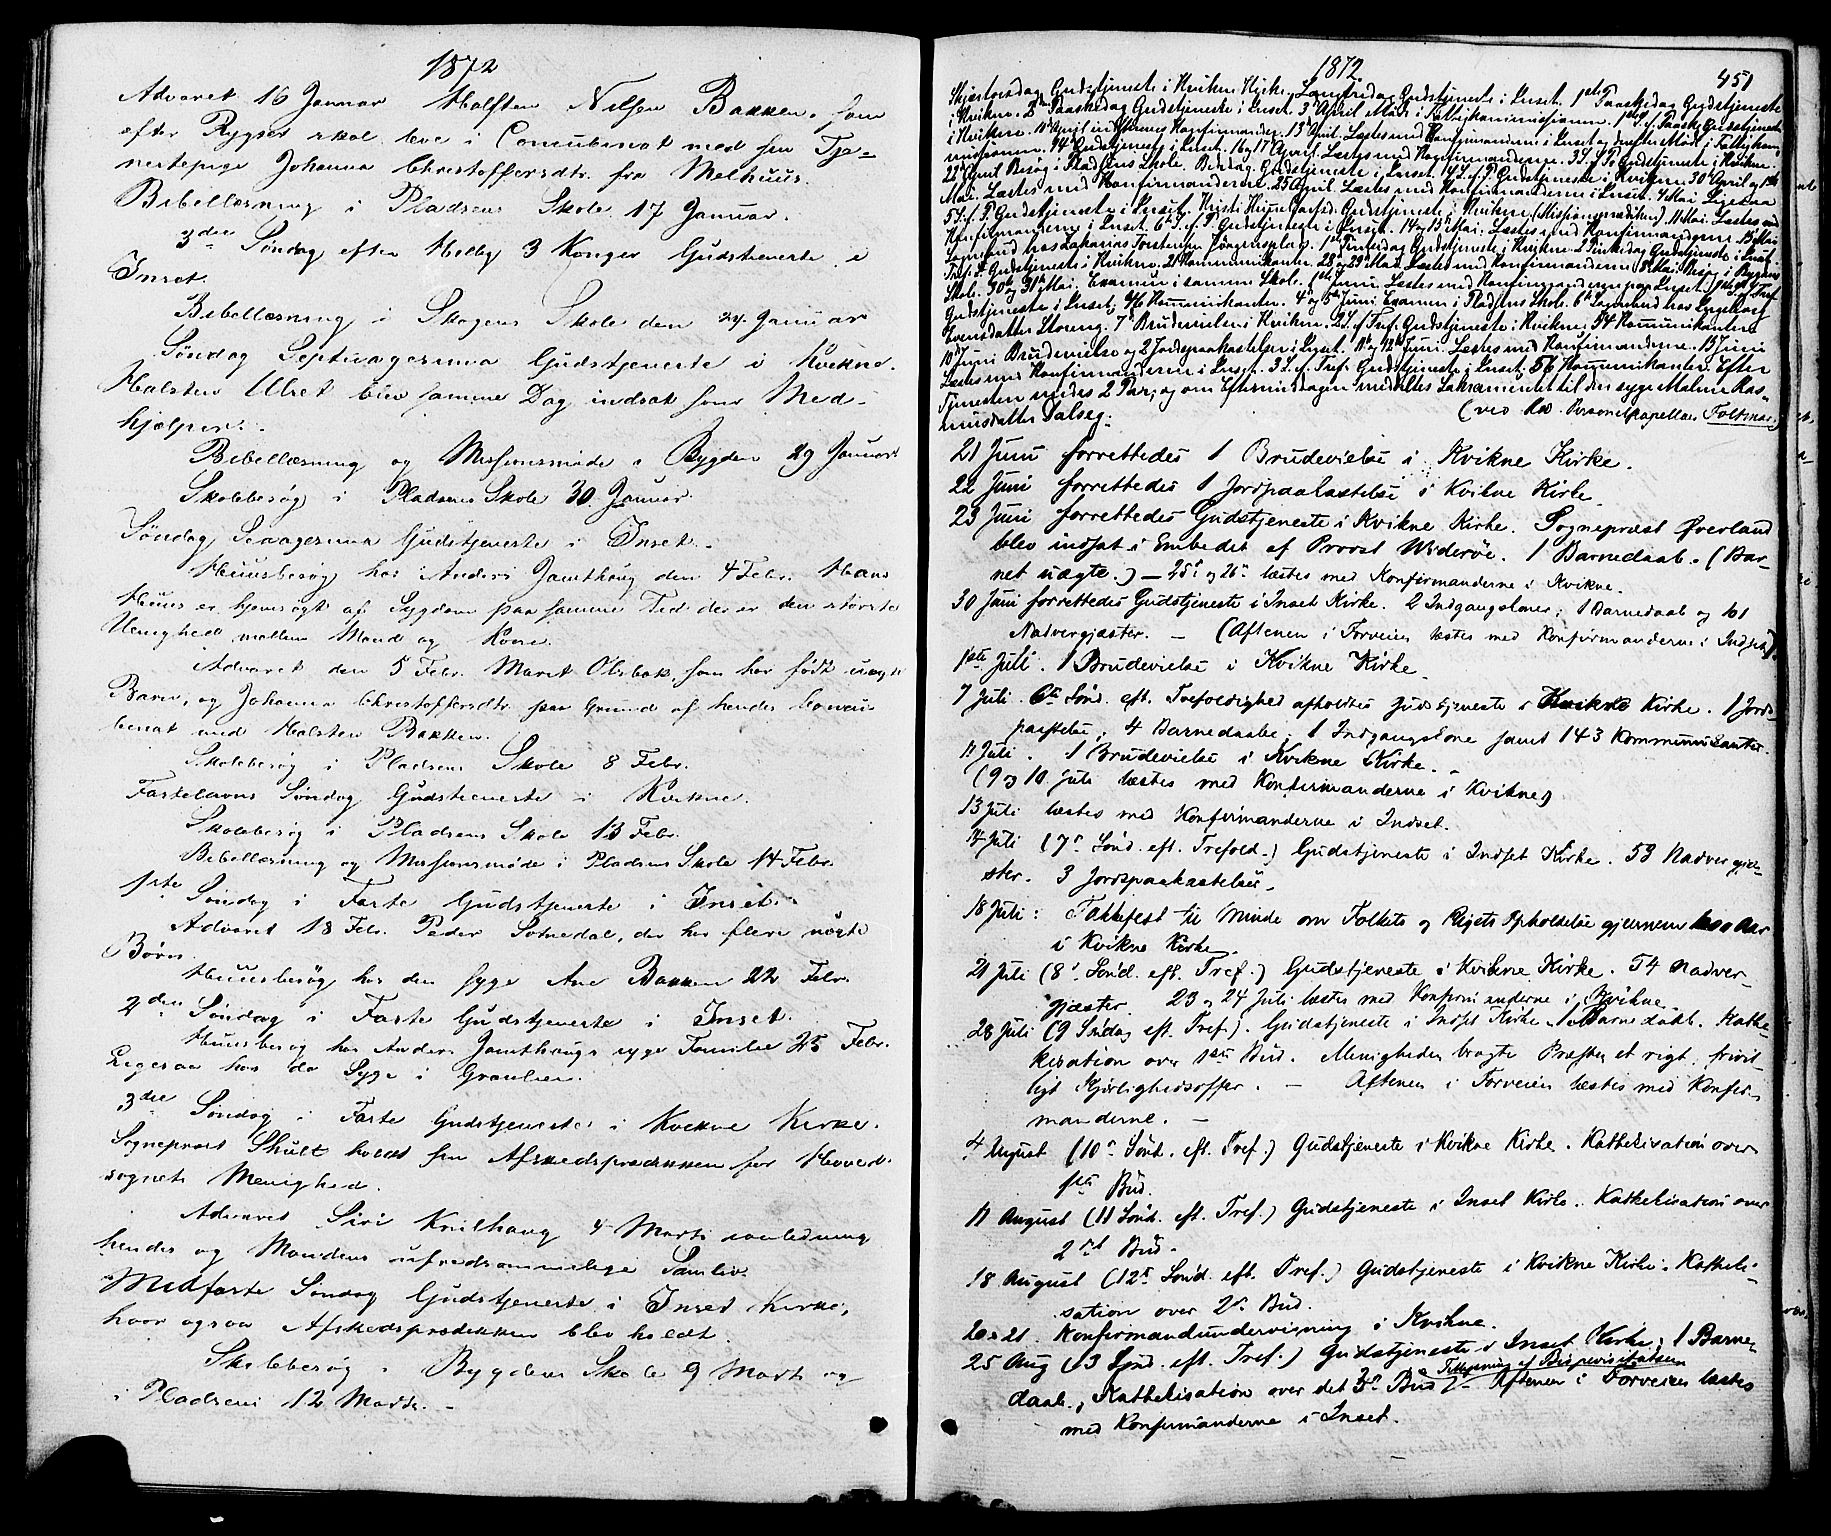 1872
Advaret 16 Januar Halsten Nilsen Bakken, som
efter Rygtet skal leve i Concubinat med sin Tje-
nestepige Johanna Christoffersdtr. fra Melhuus.
Bibellæsning i Pladsens Skole 17 Januar.
3die Søndag efter Hellig 3 Konger Gudstjeneste i
Inset.
Bibellæsning i Skogens Skole den 24. Januar
Søndag Septuagesima Gudstjeneste i Kvikne.
Halsten Ulset blev samme Dag indsat som Med-
hjælper.
Bibellæsning og Missionsmøde i Bygden 29 Januar
Skolebesøg i Pladsens Skole 30. Januar.
Søndag Sexagesima Gudstjeneste i Inset.
Huusbesøg hos Anders Jamthaug den 4 Febr. Hans
Huus er hjemsøgt af Sygdom paa samme Tid der er den største
Uenighed mellem Mand og Kone.
Advaret den 5 Febr. Marit Olsbak, som har født uægte
Barn, og Johanna Christoffersdtr. paa Grund af hendes Concu-
binat med Halsten Bakken.
Skolebesøg i Pladsens Skole 8 Febr.
Fastelavns Søndag Gudstjeneste i Kvikne.
Skolebesøg i Pladsens Skole 13 Febr.
Bibellæsning og Missionsmøde i Pladsens Skole 14 Febr.
1ste Søndag i Faste Gudstjeneste i Inset.
Advaret 18 Febr. Peder Sotnedal, der har flere uægte
Børn.
Huusbesøg hos den syge Ane Bakken 22 Febr.
2den Søndag i Faste Gudstjeneste i Inset.
Huusbesøg hos Anders Jamthaugs syge Familie 25 Febr.
Ligesaa hos de Syge i
3die Søndag i Faste Gudstjeneste i Kvikne Kirke.
Sognepræst Shult holdt sin Afskedsprædikken for Hoved-
sognets Menighed.
Advaret Siri 4 Marts i anledning
hendes og Mandens ufredsommelige Samliv.
Midfaste Søndag Gudstjeneste i Inset Kirke,
hvor ogsaa Afskedsprædikken blev holdt.
Skolebesøg i Bygdens Skole 9 Marts og
i Pladsens 12 Marts. -
1872. 451
Skjertorsdag Gudstjeneste i Kvikne Kirke, Langfredag Gudstjeneste i Inset. 1ste Paaskedag Gudstjeneste
i Kvikne. 2den Paaskedag Gudstjeneste i Inset. 3die April Møde i Fattigkommissionen. 1ste S. e. Paaske Gudstjeneste
i Kvikne. Konfirmander. 13de April. Læstes med Konfirmanderne i Inset og Møde i Fattigkom-
missionen. 14de Gudstjeneste i Inset. 16 og 17 April. Læstes med Konfirmanderne. 3 S. e. P. Gudstjeneste i Kvikne.
23de April Besøg i Pladsens Skole. Bededag. Gudstjeneste i Inset. 4 S. e. P. Gudstjeneste i Kvikne. 30te April og 1ste
Mai. Læstes med Konfirmanderne. 25 April. Læstes med Konfirmanderne i Inset. 4 Mai Ligesaa
5 S. e. P. Gudstjeneste i Inset. Kristi Himmelfartsd. Gudstjeneste i Kvikne. (Missionsprædiken). 11 Mai. Læstes med
Konfirmanderne i Inset. 6 S. e. P. Gudstjeneste i Inset. 14 og 15 Mai. Læstes med Konfirmanderne.
Sognebud hos Zakarias Torstensen. 1ste Pintsedag Gudstjeneste i Kvikne. 2 Pintsedag Gudstjeneste i Inset.
Tref. S. Gudstjeneste i Kvikne. 21 Kommunikanter. 28 og 29 Mai. Læstes med Konfirmanderne. Besøg i Bygdens
Skole. 30te og 31te Mai. Examen i samme Skole. 1ste Juni Læstes med Konfirmanderne fra Inset. 1ste S. e. Tref.
Gudstjeneste i Inset, Kommunikanter. 4de og 5te Juni Examen i Pladsens Skole. 6te Sognebud hos Ingeborg
Evensdatter Storeng. 7de Brudevielse i Kvikne. 2 S. e. Tref. Gudstjeneste i Kvikne, 54 Kommunikanter.
10de Juni Brudevielse og 2 Jordspaakastelser i Inset. 11te og 12te Juni. Læstes med Konfirmanderne. 15 Juni
Læstes med Konfirmanderne i Inset. 3 S. e. Tref. Gudstjeneste i Inset. 56 Kommunikanter. Efter
Tjenesten viedes 2 Par, og om Eftermiddagen meddeltes Sakramentet til den syge Malene Ras-
musdatter Dalseg. (ved Personelkapellan Foltmar.)
21 Juni forrettedes 1 Brudevielse i Kvikne Kirke.
22 Juni forrettedes 1 Jordpaakastelse i Kvikne Kirke
23 Juni forrettedes Gudstjeneste i Kvikne Kirke. Sognepræst Øverland
blev indsat i Embedet af Provst Widerøe. 1 Barnedaab. (Bar-
net uægte.) - 25de og 26de læstes med Konfirmanderne i Kvikne.
30 Juni forrettedes Gudstjeneste i Inset Kirke. 2 Indgangskoner; 1 Barnedaab og 101
Nadvergjæster. - (Aftenen i Forveien læstes med Konfirmanderne i Indset).
1ste Juli. 1 Brudevielse i Kvikne Kirke.
7 Juli. 6te Sønd. eft. Trefoldighed afholdtes Gudstjeneste i Kvikne Kirke. 1 Jords-
paastelse, 4 Barnedaabe, 1 Indgangskone samt 143 Kommunikanter.
11 Juli. 1 Brudevielse i Kvikne Kirke. -
(9 og 10 Juli læstes med Konfirmanderne i Kvikne)
13 Juli læstes med Konfirmanderne i Indset.
14 Juli (7de Sønd. eft. Trefold.) Gudstjeneste i Indset Kirke. 53 Nadvergjæ-
ster. 3 Jordspaakastelser.
18 Juli: Takkefest til Minde om Folkets og Rigets Opholdelse gjennem 1000 Aar
i Kvikne Kirke.
21 Juli (8de Sønd. eft. Tref.) Gudstjeneste i Kvikne Kirke. 54 Nadver-
gjæster. 23 og 24 Juli læstes med Konfirmanderne i Kvikne.
28 Juli (9 Søndag eft. Tref.). Gudstjeneste i Indset Kirke. 1 Barnedaab. Kathe-
kisation over 1ste Bud. Menigheden bragte Præsten et rigt, frivil-
ligt Kjærlighedsoffer. - Aftenen i Forveien læstes med Konfir-
manderne. -
4 August (10de Sønd. eft. Tref.) Gudstjeneste i Kvikne Kirke. Kathekisation over
1ste Bud.
11 August (11 Sønd. eft. Tref.) Gudstjeneste i Inset Kirke. Kathekisation over
2det Bud.
18 August (12te Sønd. eft. Tref.) Gudstjeneste i Kvikne Kirke. Katheki-
sation over 2det Bud.
20 & 21. Konfirmandundervisning i Kvikne.
25 Aug (13 Sønd. eft. Tref.) Gudstjeneste i Inset Kirke; 1 Barne-
daab, Kathekisation over det 3die Bud & Tillysning af Bispevisitatsen - Aftenen i Forveien læstes
med Konfirmanderne i Inset.